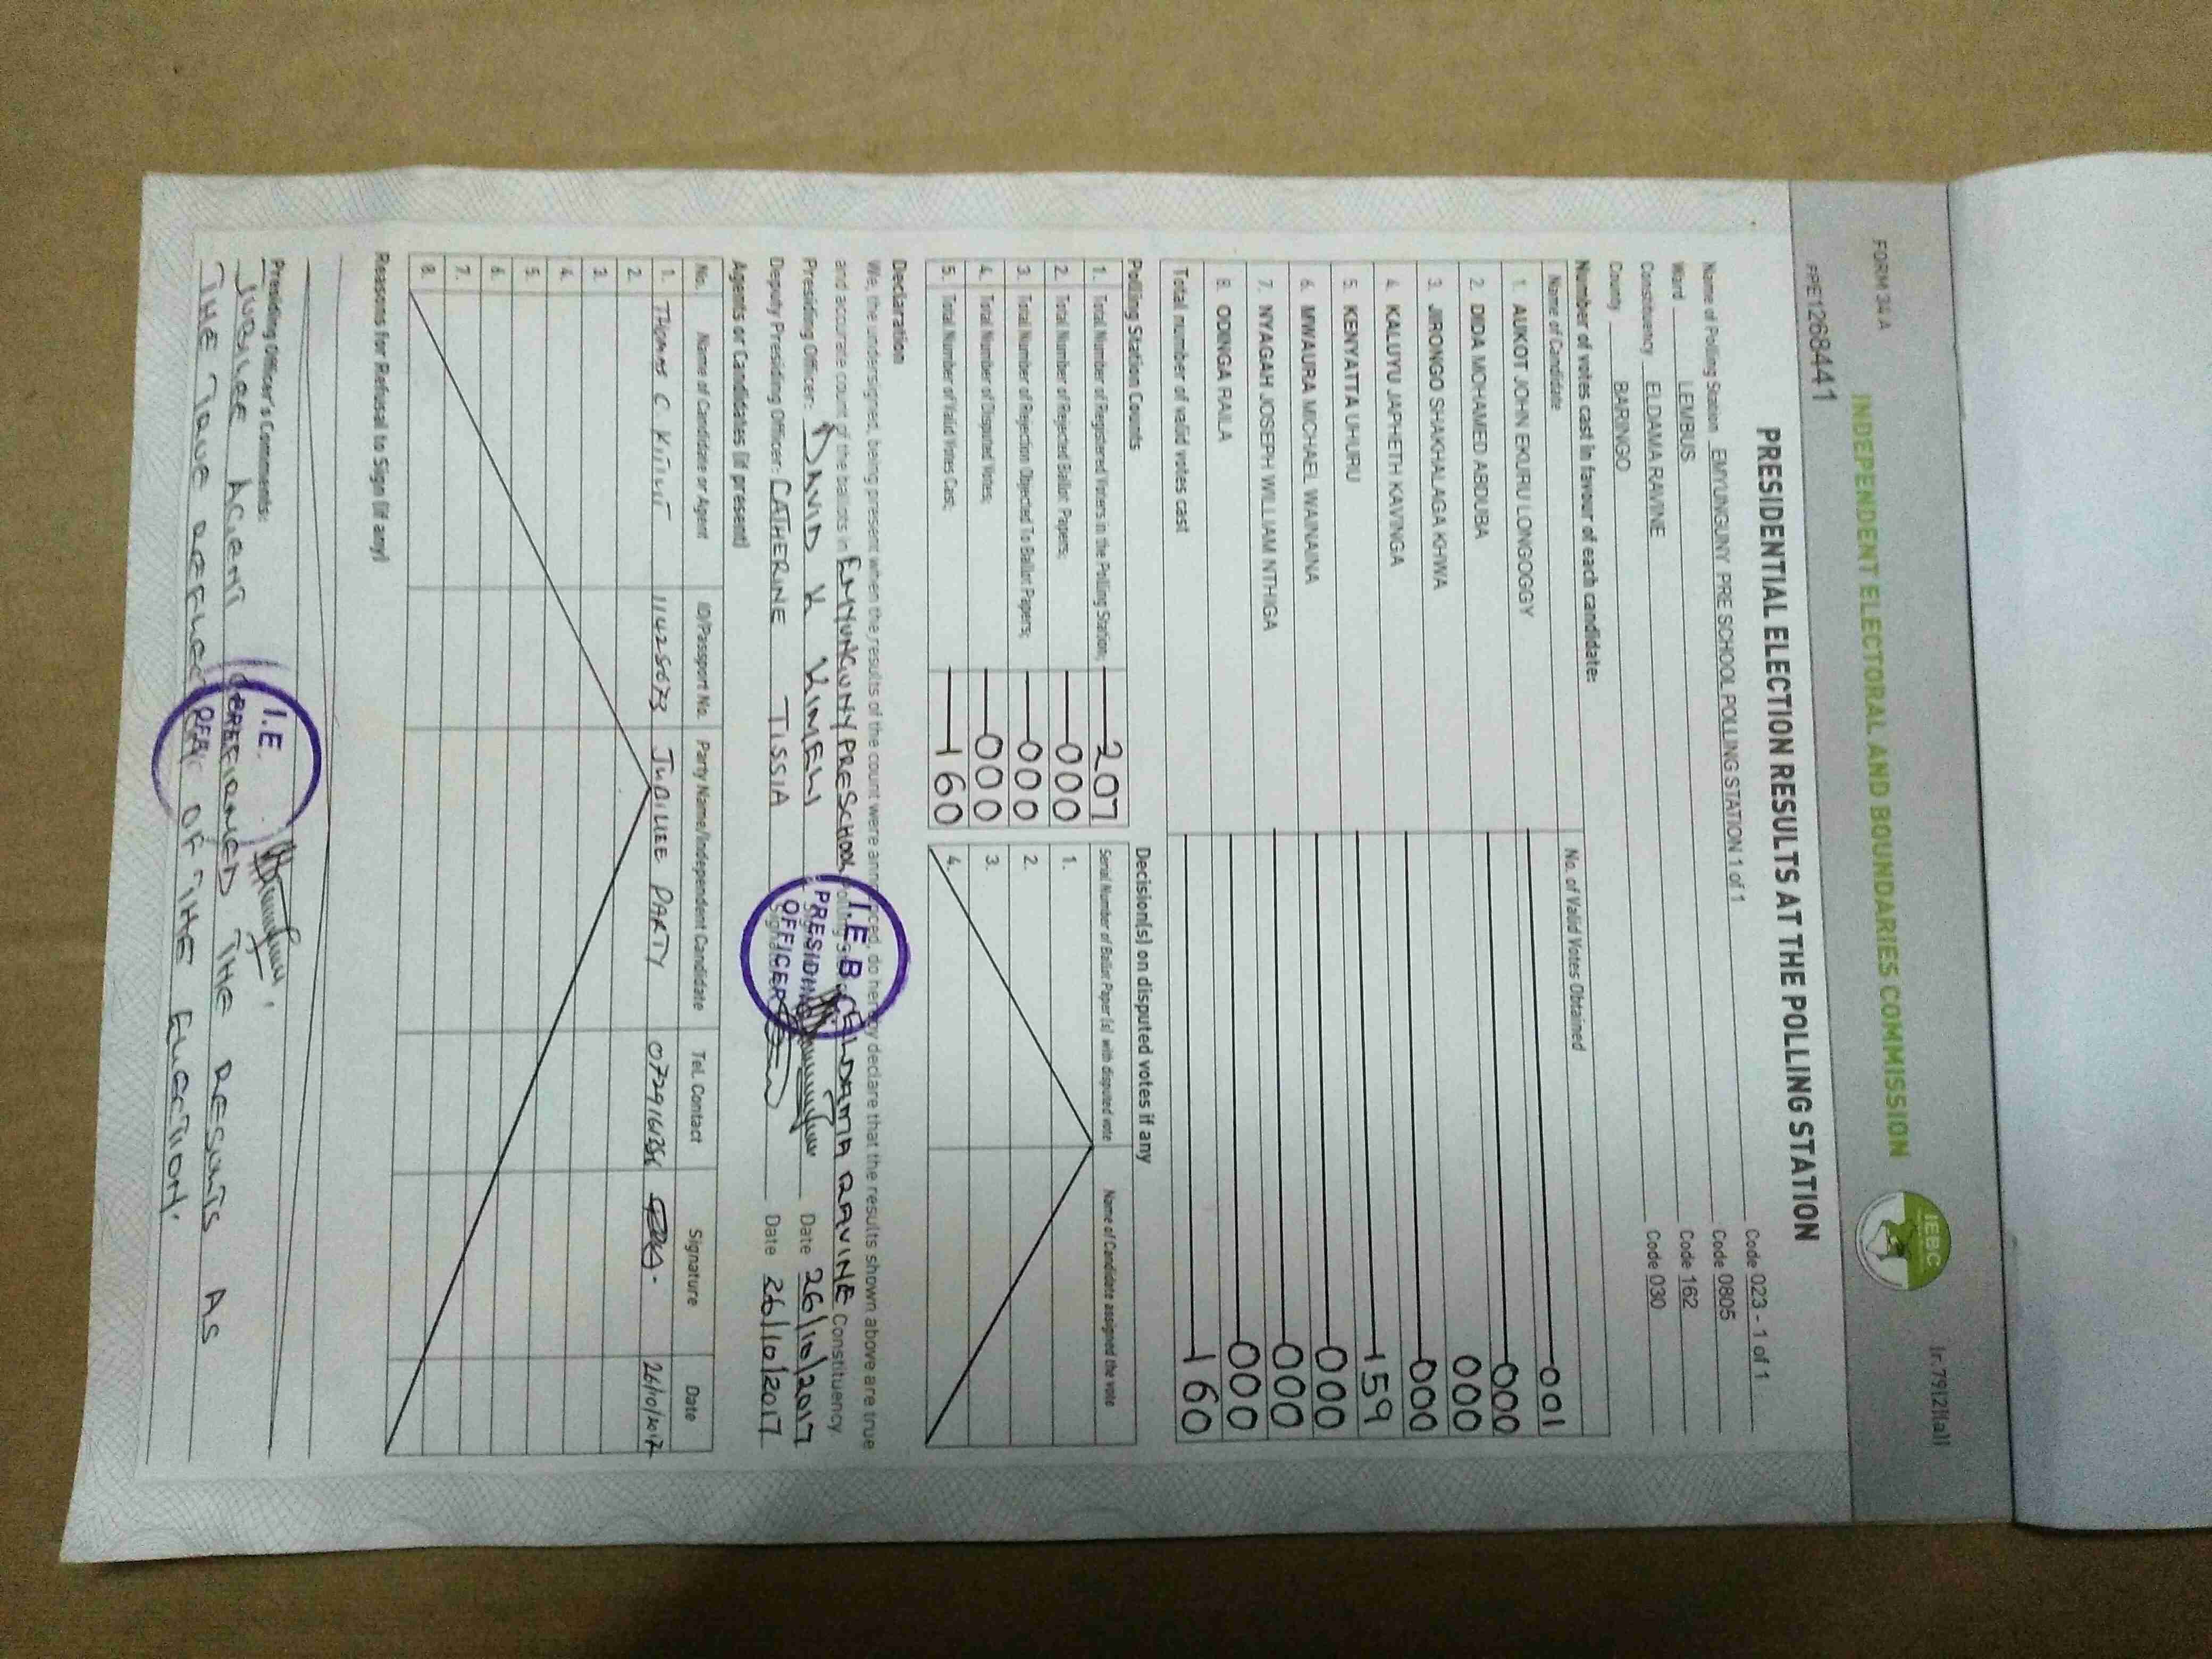 FORM 34 A
Ir. 79(2)(a)
INDEPENDENT ELECTORAL AND BOUNDARIES COMMISSION
IEBC
PPE1268441
PRESIDENTIAL ELECTION RESULTS AT THE POLLING STATION
Name of Polling Station EMYUNGUNY PRE SCHOOL POLLING STATION 1 of 1 Code 023 - 1 of 1
Ward LEMBUS Code 0805
Constituency ELDAMA RAVINE Code 162
County BARINGO Code 030
Number of votes cast in favour of each candidate:
Name of Candidate No. of Valid Votes Obtained
1. AUKOT JOHN EKURU LONGOGGY 001
2. DIDA MOHAMED ABDUBA 000
3. JIRONGO SHAKHALAGA KHWA 000
4. KALUYU JAPHETH KAVINGA 000
5. KENYATTA UHURU 159
6. MWAURA MICHAEL WAINAINA 000
7. NYAGAH JOSEPH WILLIAM NTHIGA 000
8. ODINGA RAILA 000
Total number of valid votes cast 160
Polling Station Counts
1. Total Number of Registered Voters in the Polling Station; 207
2. Total Number of Rejected Ballot Papers; 000
3. Total Number of Rejection Objected To Ballot Papers; 000
4. Total Number of Disputed Votes; 000
5. Total Number of Valid Votes Cast; 160
Decision(s) on disputed votes if any
Serial Number of Ballot Paper (s) with disputed vote Name of Candidate assigned the vote
1.
2.
3.
4.
Declaration
We, the undersigned, being present when the results of the count were announced, do hereby declare that the results shown above are true
and accurate count of the ballots in EMYUNGUNY PRESCHOOL Polling ELDAMA RAVINE Constituency.
Presiding Officer: DAVID K KIMELI Date 26/10/2017
Deputy Presiding Officer: CATHERINE TISSIA Date 26/10/2017
I.E.B.C
PRESIDING
OFFICER
Agents or Candidates (if present)
No. Name of Candidate or Agent ID/Passport No. Party Name/Independent Candidate Tel. Contact Signature Date
1. THOMAS C 11425073 JUBILEE PARTY 26/10/2017
2.
3.
4.
5.
6.
7.
8.
Reasons for Refusal to Sign (if any)
Presiding Officer's Comments:
I.E.
JUBILEE AGENT THE RESULTS AS
THE TRUE OF THE ELECTION.